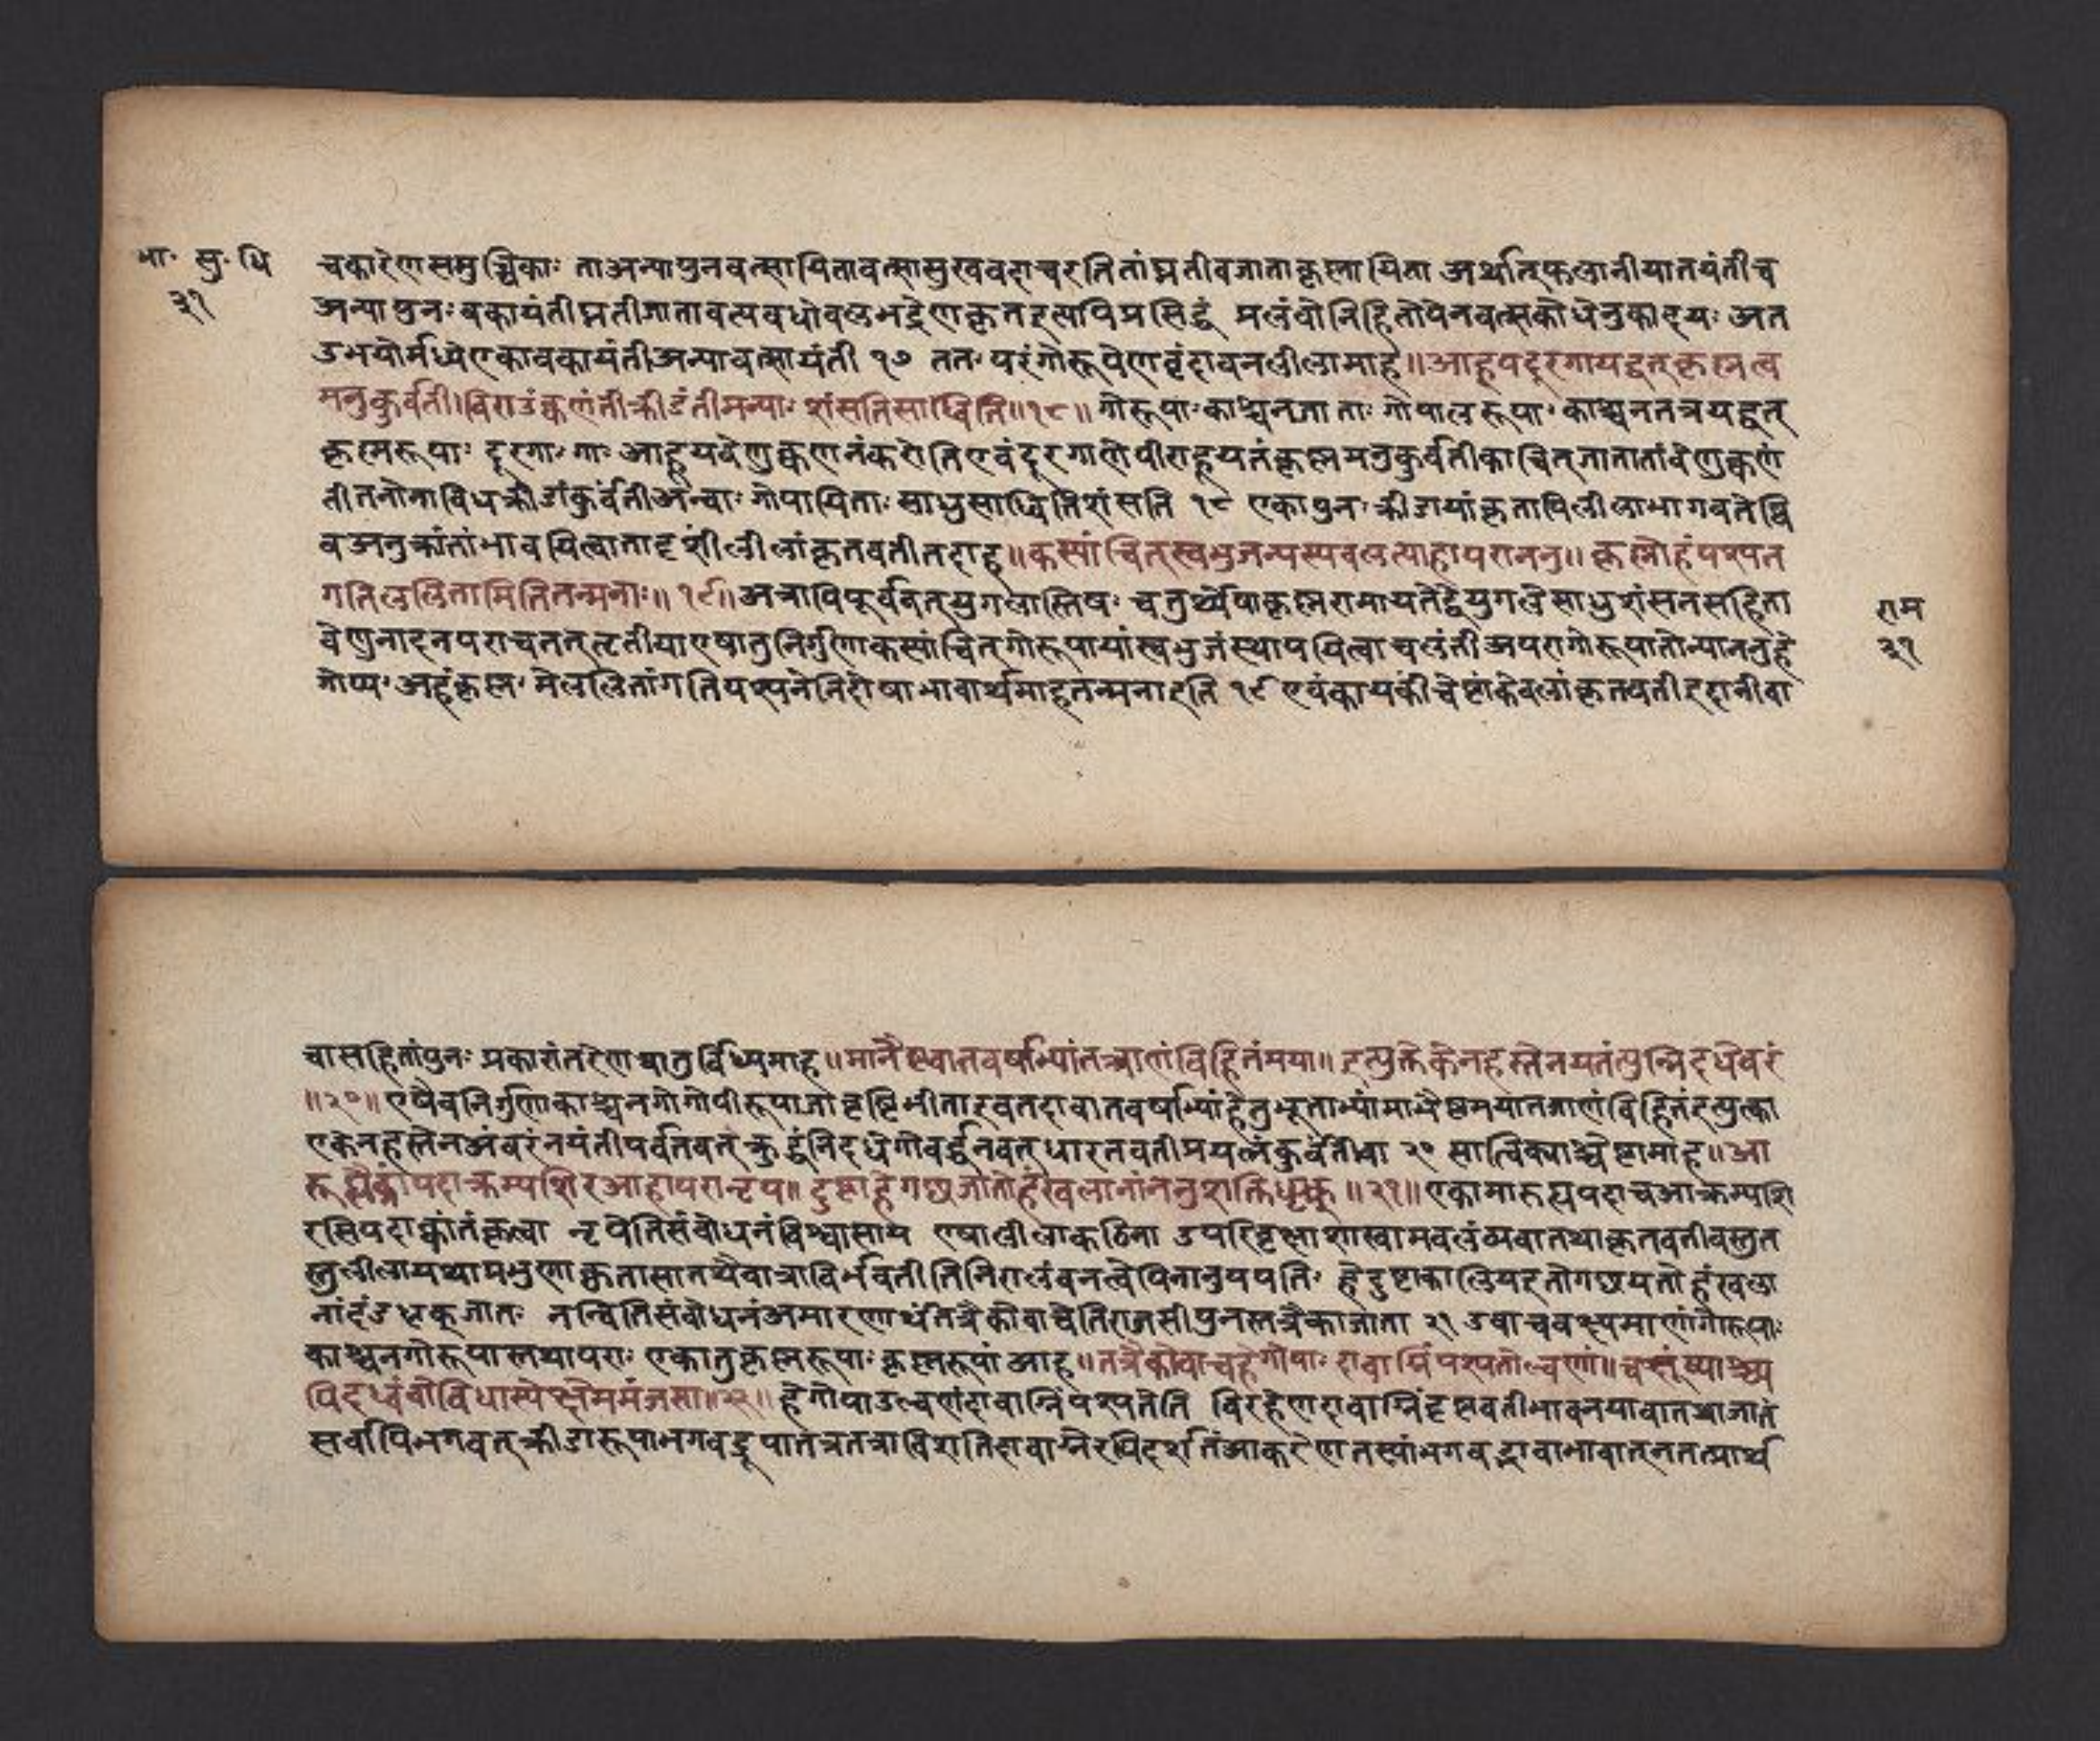 भा॰ सु॰ धि
३१
चकारेणसमुच्चिकाः ताअन्यापुनवत्सायितावत्सासुखवदाचरतितांघ्नतीवजाताकृष्णायिता अर्थात्फलानीयातयंतीच
अन्यापुनः वकायंतीघ्नतीजातावत्यवधोवलभद्रेणकृतइत्यपिप्रसिद्धं प्रलंवोनिहितोयेनवत्सकोधेनुकादयः अत
उभयोर्मध्येएकावकायंतीअन्यावत्सायंती १७ ततः परंगोरूपेणवृंदावनलीलामाह॥आहूयदूरगायद्वत्कृष्णत्व
मनुकुर्वतीं।विराउंक्वणंतीक्रीडंतीमन्याः शंसतिसाध्विति॥१८॥ गोरूपाः काश्चनजाताः गोपालरूपाः काश्चनतत्रयद्वत्
कृष्णरूपाः दूरगाः गाः आहूयवेणुक्वणनंकरोतिएवंदूरगागोपीराहूयतंकृष्णमनुकुर्वतीकाचित्जातातांवेणुक्वणं
तीतनोनाविधक्रीडांकुर्वतीअन्याः गोपायिताः साधुसाध्वितिशंसति १८ एकापुनः क्रीडायांकृतापिलीलाभागवतेष्वि
वअनुक्रांतांभावयित्वातादृशींलीलांकृतवतीतदाह॥कस्यांचित्स्वभुजन्यस्यवलत्याहापराननु॥कृष्णोहंपश्यत
गतिंललितामितितन्मनाः॥१९॥अत्रापिपूर्ववत्युगलास्तिषः चतुर्थ्येषाकृष्णरामायतेद्वेयुगलेसाधुशंसनसहिता
वेणुनादनपराचततत्तृतीयाएषातुनिर्गुणाकस्यांचित्गोरूपायांस्वभुजंस्थापयित्वाचलंतीअपरागोरूपातोन्याननुहे
गोप्यः अहंकृष्णः मेललितांगतिंपश्यनेतिदोषाभावार्थमाहतन्मनाइति १९ एवंकायकींचेष्टांकेवलांकृतवतीइदानींवा
राम
३१
चासहितांपुनः प्रकारांतरेणचातुर्विध्यमाह॥माभैष्टवातवर्षाभ्यांतत्त्राणंविहितंमया॥इत्युक्तेकेनहस्तेनयतंत्युन्निदधेंवरं
॥२०॥एषैवनिर्गुणाकाश्चनगोगोपीरूपाजोवृष्टिभीताइवतदावातवर्षाभ्यांहेतुभूताभ्यांमाभैष्टमयातत्राणंविहितंइत्युत्का
एकेनहस्तेनअंवरंनयंतीपर्वतवत् क्रुद्धंनिदधेगोवर्द्धनवत् धारतवतीप्रयत्नंकुर्वतीवा २० सात्विक्याश्चेष्टामाह॥आ
रुह्यैकांपदाक्रम्यशिरआहापरान्नृप॥दुष्टाहेगछजातोहंखलानांननुशक्तिधृक्॥२१॥एकामारुह्यपदाचआक्रम्यशि
रसिपदाक्रांतंकृत्वा नृपेतिसंवोधनंविश्वासाय एषालीलाकठिना उपरिवृक्षशाखामवलंव्यवातथाकृतवतीवस्तुत
स्तुलीलायथाप्रभुणाकृतासातथैवात्राविर्भवतीतिनिरालंवनत्वेपिनानुपपतिः हेदुष्टाकालियइतोगछयतोहंखला
नांदंडधृक्जातः नन्वितिसंवोधनंअमारणार्थंतत्रैकोवाचेतिराजसीपुनस्तत्रैकाजाता २१ उवाचवक्ष्यमाणांगोरूपाः
काश्चनगोरूपास्तथापराः एकातुकृष्णरूपाः कृष्णरूपां आह॥तत्रैकोवाचहेगोपाः दावाग्निंपश्यतोल्वणं॥चक्षूंष्याश्व
पिदध्वंवोविधास्येक्षेममंजसा॥२२॥हेगोपाउल्वणंदावाग्निंपश्यतेति विरहेणदावाग्निंदृष्टवतीभावनयावातथाजातं
सर्वापिभगवत्क्रीडारूपाभगवद्रूपातत्रतत्राविशतिदावाग्नेरपिदर्शतंआकरेणतस्यांभगवद्भावाभावात्नतत्प्रार्थ